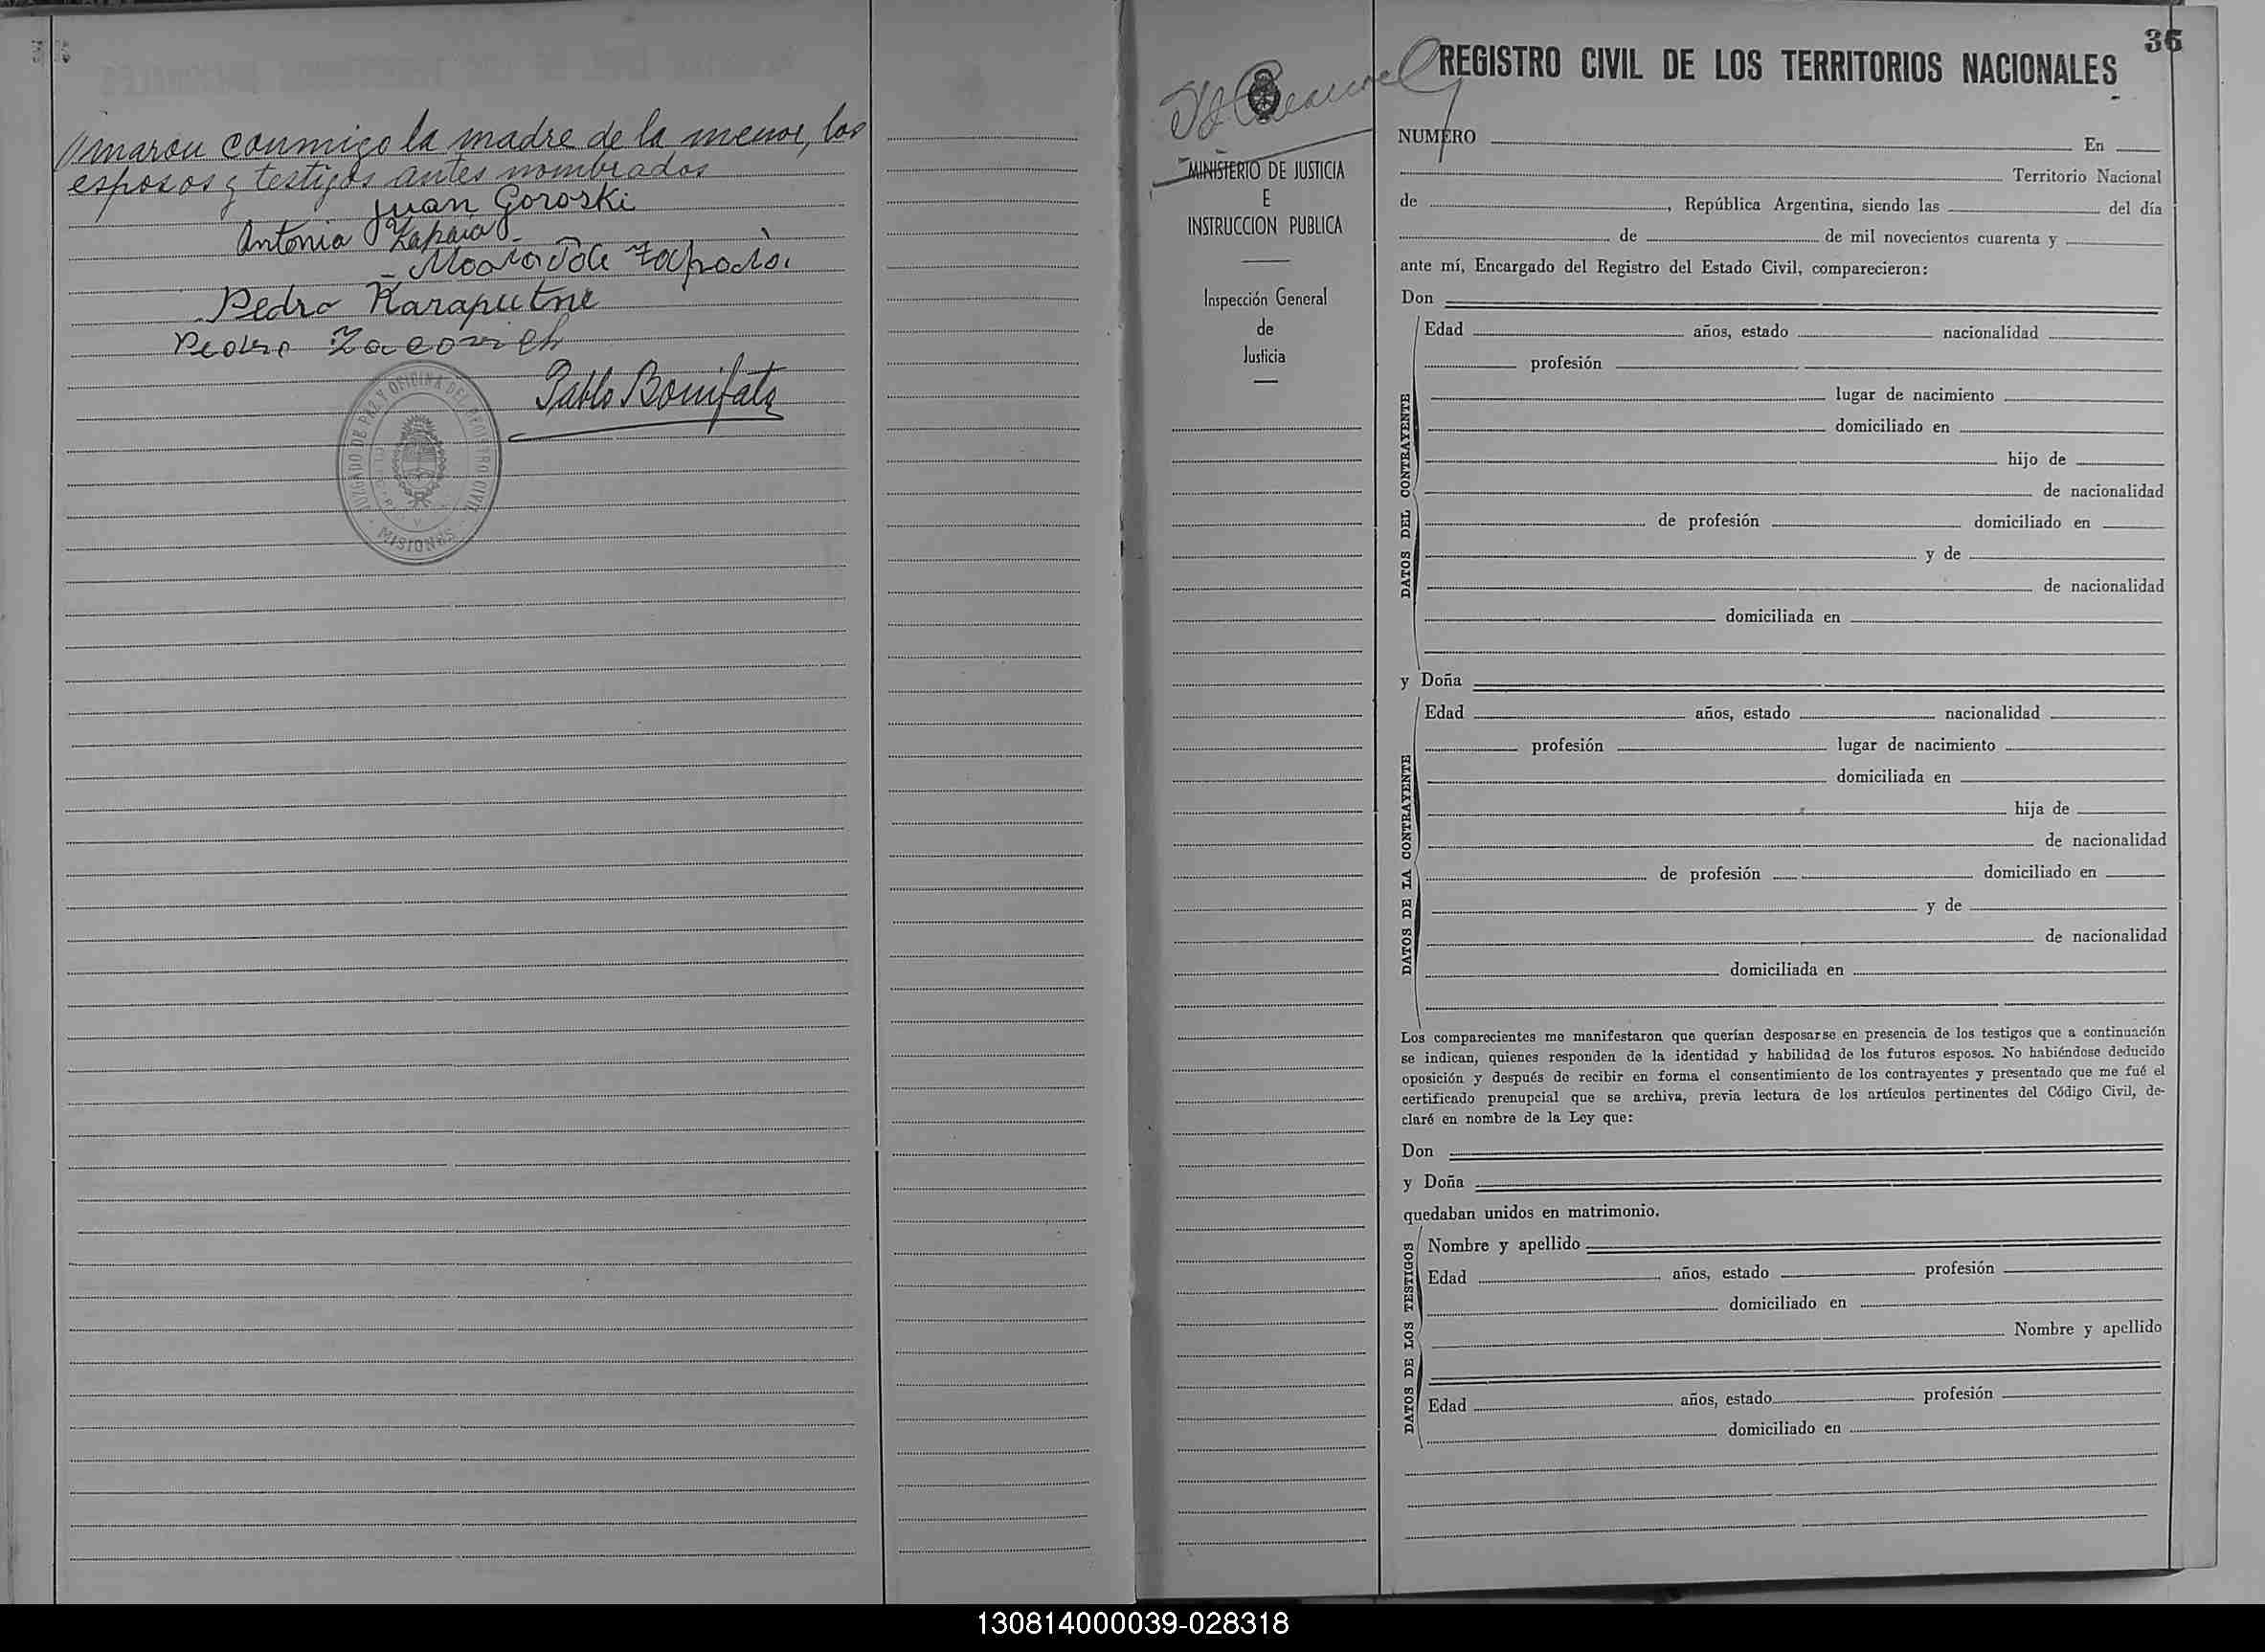 firmaron conmigo la madre de la menor, los
esposos y testigos antes nombrados
Juan Goroski
Antonia Zapaia
Pedro Karaputne
Pedro
Pablo Bonifatz
JUZGADO DE PAZ Y OFICINA DEL REGISTRO CIVIL
MISIONES
MINISTERIO DE JUSTICIA
E
INSTRUCCION PUBLICA
Inspección General
de
Justicia
36
REGISTRO CIVIL DE LOS TERRITORIOS NACIONALES
NUMERO En
Territorio Nacional
de , República Argentina, siendo las del día
de de mil novecientos cuarenta y
ante mí, Encargado del Registro del Estado Civil, comparecieron:
Don
DATOS DEL CONTRAYENTE
Edad años, estado nacionalidad
profesión
lugar de nacimiento
domiciliado en
hijo de
de nacionalidad
de profesión domiciliado en
y de
de nacionalidad
domiciliada en
y Doña
DATOS DE LA CONTRAYENTE
Edad años, estado nacionalidad
profesión lugar de nacimiento
domiciliada en
hija de
de nacionalidad
de profesión domiciliado en
y de
de nacionalidad
domiciliada en
Los comparecientes me manifestaron que querían desposarse en presencia de los testigos que a continuación
se indican, quienes responden de la identidad y habilidad de los futuros esposos. No habiéndose deducido
oposición y después de recibir en forma el consentimiento de los contrayentes y presentado que me fué el
certificado prenupcial que se archiva, previa lectura de los artículos pertinentes del Código Civil, de-
claré en nombre de la Ley que:
Don
y Doña
quedaban unidos en matrimonio.
DATOS DE LOS TESTIGOS
Nombre y apellido
Edad años, estado profesión
domiciliado en
Nombre y apellido
Edad años, estado profesión
domiciliado en
130814000039-028318